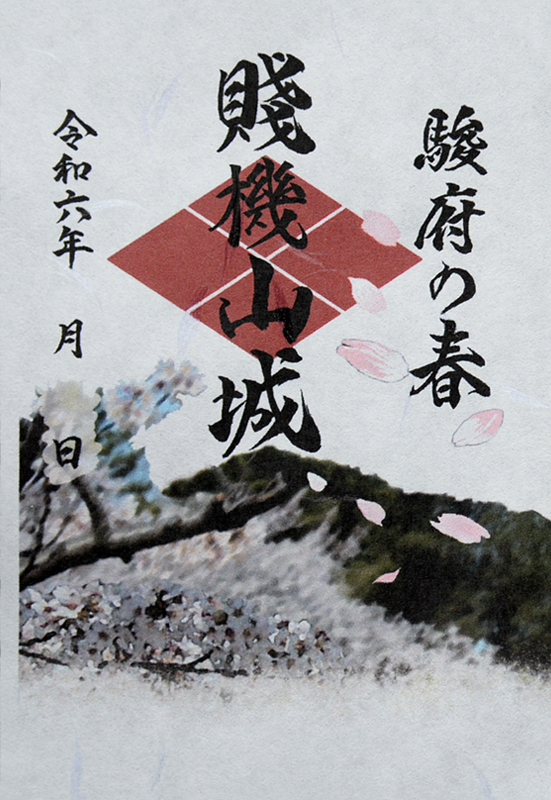 駿府の春
賤機山城
令和六年　月　日